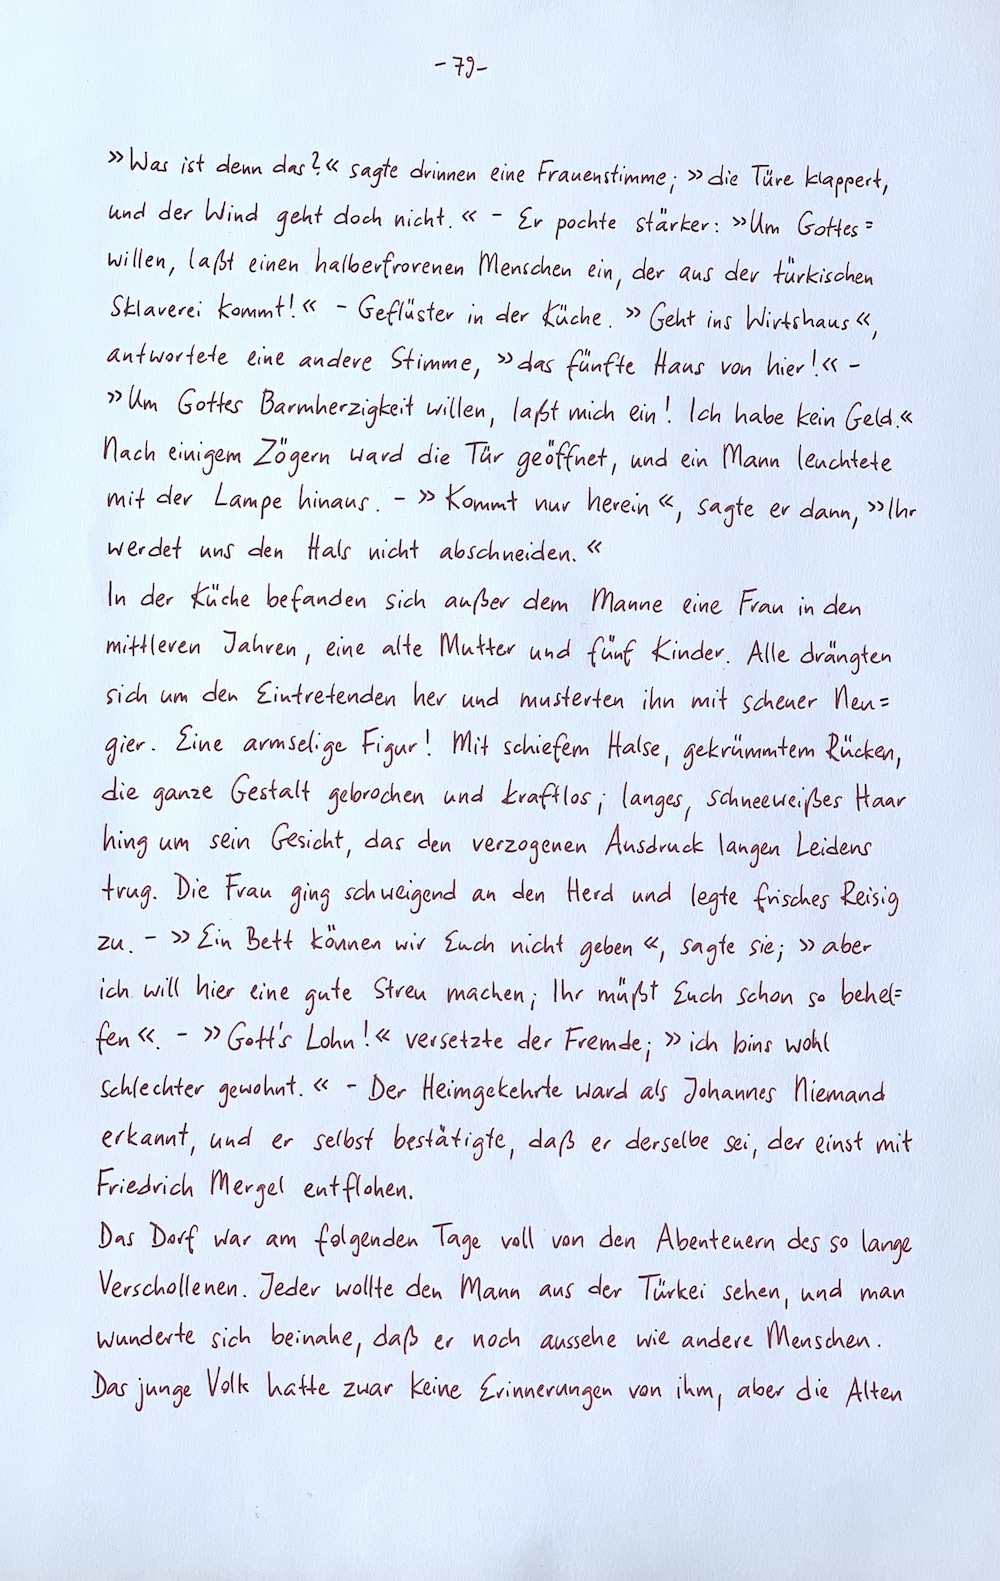 -79-
»Was ist denn das?« sagte drinnen eine Frauenstimme; »die Türe klappert,
und der Wind geht doch nicht.« - Er pochte stärker: »Um Gottes=
willen, laßt einen halberfrorenen Menschen ein, der aus der türkischen
Sklaverei kommt!« - Geflüster in der Küche. »Geht ins Wirtshaus«,
antwortete eine andere Stimme, »das fünfte Haus von hier!« -
»Um Gottes Barmherzigkeit willen, laßt mich ein! Ich habe kein Geld.«
Nach einigem Zögern ward die Tür geöffnet, und ein Mann leuchtete
mit der Lampe hinaus. - »Kommt nur herein«, sagte er dann, »Ihr
werdet uns den Hals nicht abschneiden.«
In der Küche befanden sich außer dem Manne eine Frau in den
mittleren Jahren, eine alte Mutter und fünf Kinder. Alle drängten
sich um den Eintretenden her und musterten ihn mit scheuer Neu=
gier. Eine armselige Figur! Mit schiefem Halse, gekrümmtem Rücken,
die ganze Gestalt gebrochen und kraftlos; langes, schneeweißes Haar
hing um sein Gesicht, das den verzogenen Ausdruck langen Leidens
trug. Die Frau ging schweigend an den Herd und legte frisches Reisig
zu. - »Ein Bett können wir Euch nicht geben«, sagte sie; »aber
ich will hier eine gute Streu machen; Ihr müßt Euch schon so behel=
fen«. - »Gott's Lohn!« versetzte der Fremde; »ich bins wohl
schlechter gewohnt.« - Der Heimgekehrte ward als Johannes Niemand
erkannt, und er selbst bestätigte, daß er derselbe sei, der einst mit
Friedrich Mergel entflohen.
Das Dorf war am folgenden Tage voll von den Abenteuern des so lange
Verschollenen. Jeder wollte den Mann aus der Türkei sehen, und man
wunderte sich beinahe, daß er noch aussehe wie andere Menschen.
Das junge Volk hatte zwar keine Erinnerungen von ihm, aber die Alten